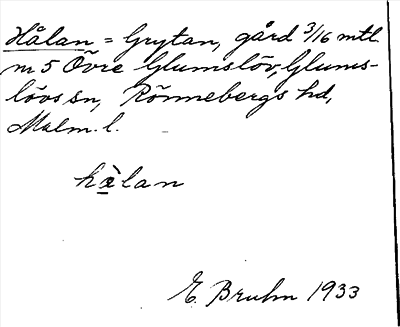 Hålan = Grytan, gård 3/16 mtl.
nr 5 Övre Glumslöv, Glums-
lövs sn, Rönnebergs hd,
Malm. l.
hæ̀lan
E Bruhn 1933